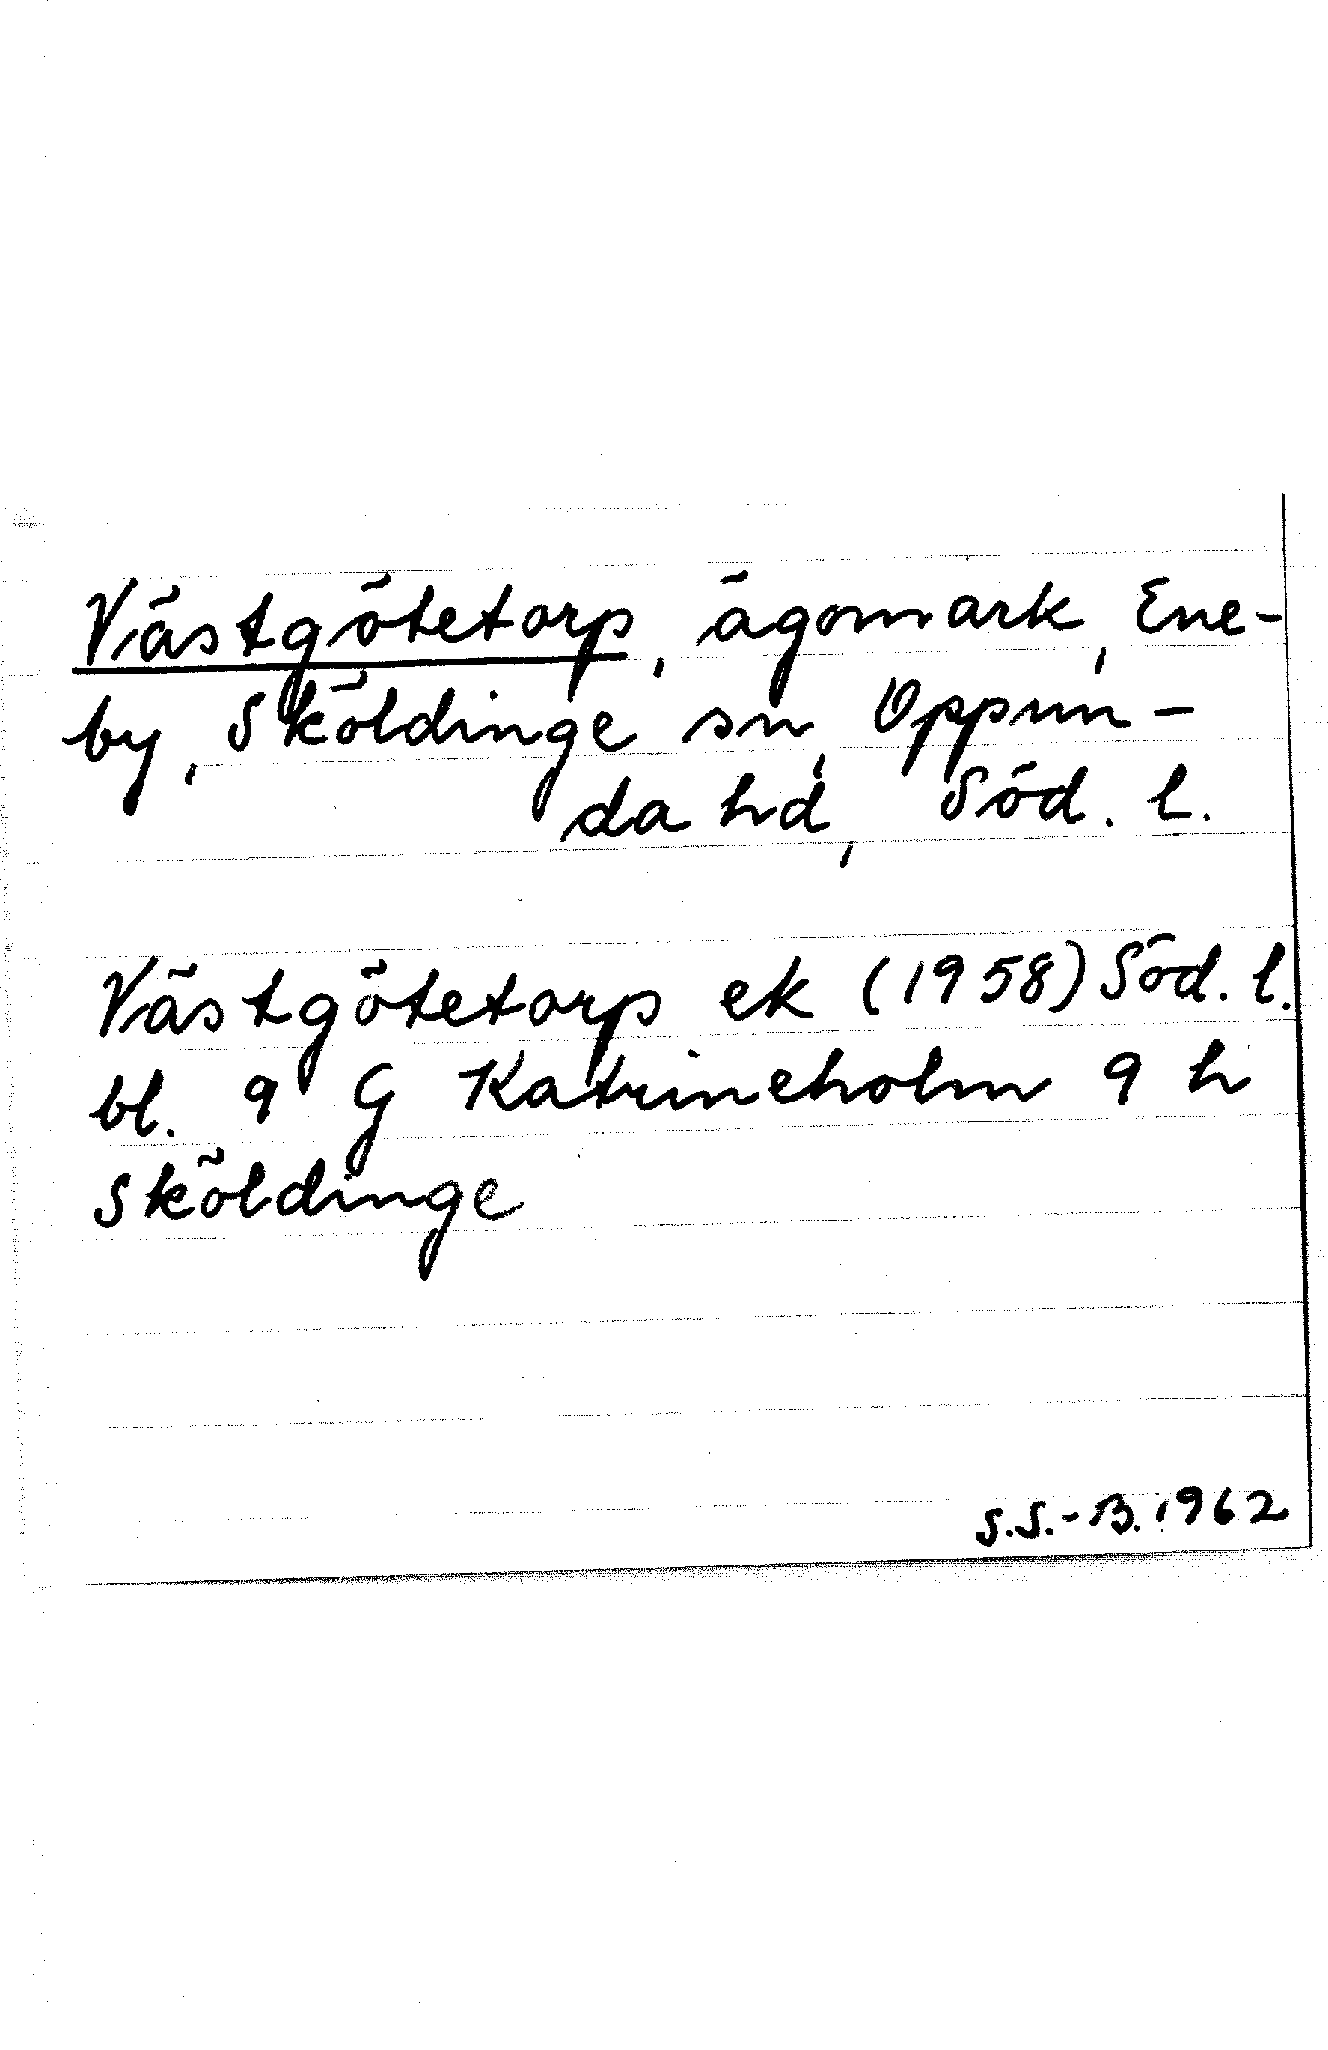 Västgötetorp, ägomark, Ene-
by, Sköldinge sn, Oppun-
da hd, Söd. l.
Västgötetorp ek (1958) Söd. l.
bl. 9 G Katrineholm 9 h
Sköldinge
S.S.-B. 1962